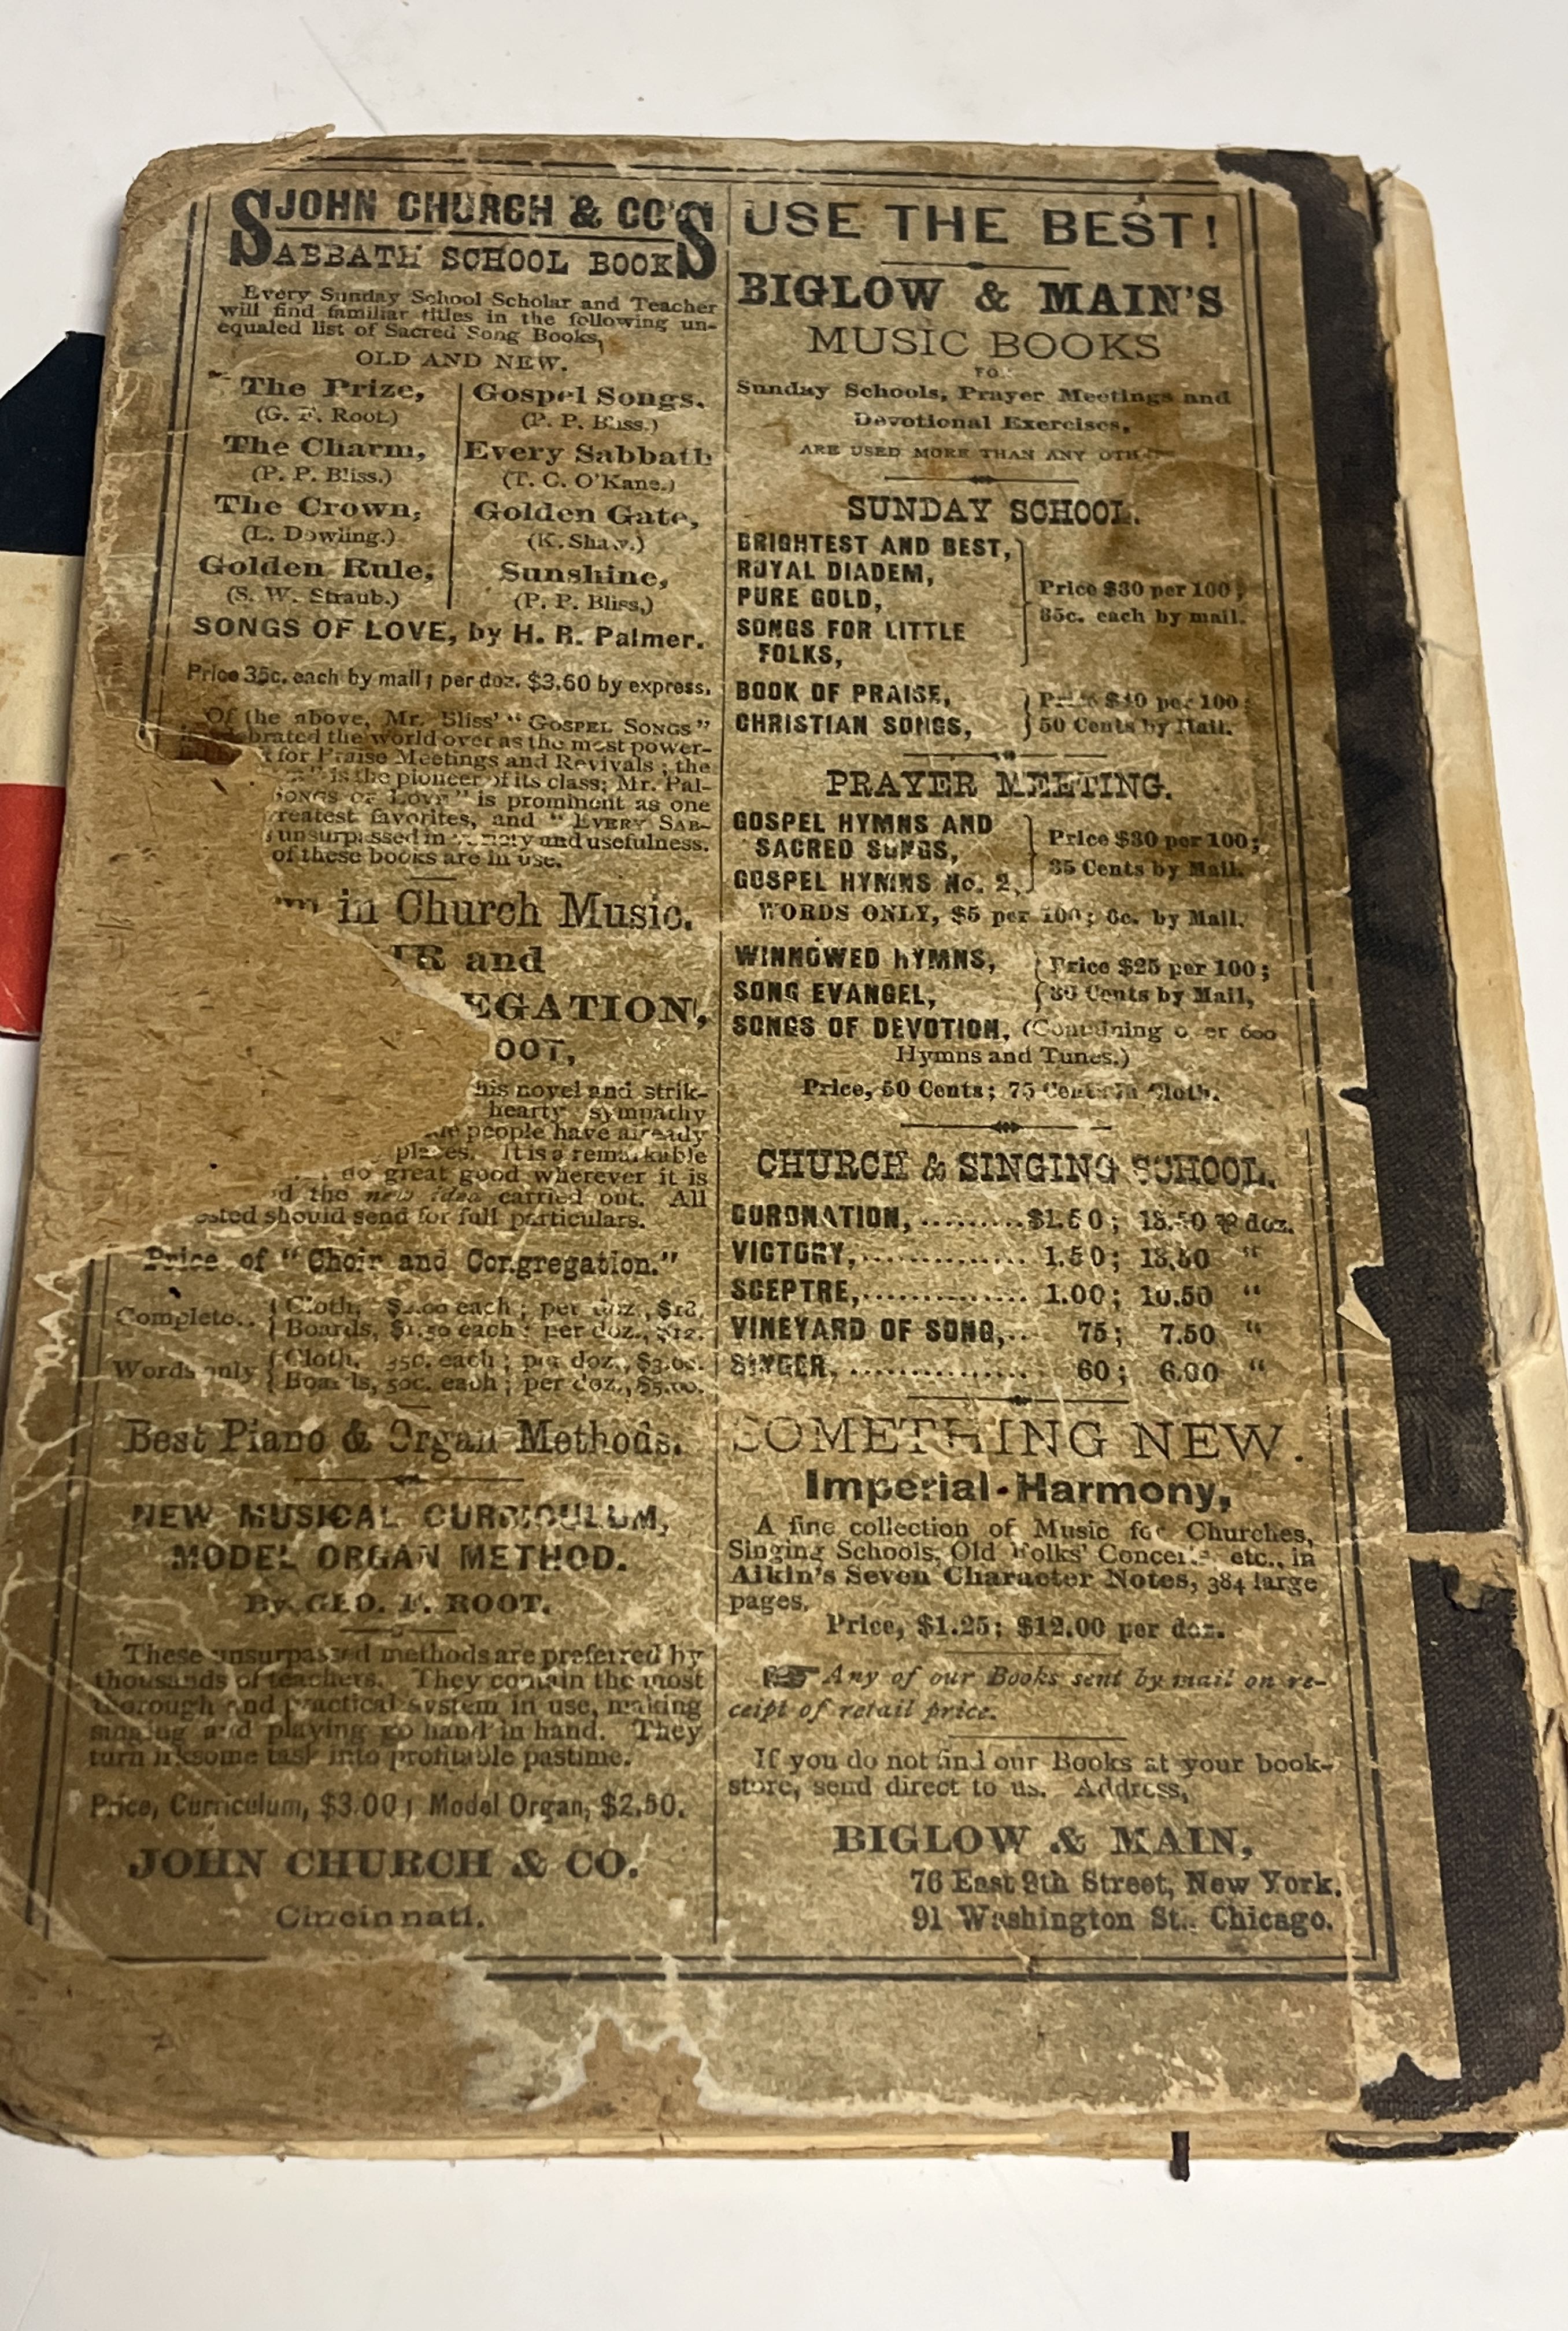 JOHN CHURCH & CO'S
SABBATH SCHOOL BOOKS
Every Sunday School Scholar and Teacher
will find familiar titles in the following un-
equaled list of Sacred Song Books,
OLD AND NEW.
The Prize,
(G. F. Root.)
The Charm,
(P. P. Bliss.)
The Crown,
(L. Dowling.)
Golden Rule,
(S. W. Straub.)
Gospel Songs.
(P. P. Bliss.)
Every Sabbath
(T. C. O'Kane.)
Golden Gate,
(K. Shaw.)
Sunshine,
(P. P. Bliss,)
SONGS OF LOVE, by H. R. Palmer.
Price 35c. each by mail; per doz. $3.60 by express.
Of the above, Mr. Bliss' "GOSPEL SONGS"
brated the world over as the most power-
for Praise Meetings and Revivals; the
" is the pioneer of its class; Mr. Pal-
SONGS OF LOVE" is prominent as one
reatest favorites, and "EVERY SAB-
unsurpassed in variety and usefulness.
of these books are in use.
in Church Music.
IR and
EGATION,
OOT,
his novel and strik-
hearty sympathy
people have already
places. It is a remarkable
do great good wherever it is
d the new idea carried out. All
ested should send for full particulars.
Price of "Choir and Congregation."
Complete.. { Cloth, $2.00 each; per doz., $18.
{ Boards, $1.50 each; per doz., $12.
Words only { Cloth, 35c. each; per doz., $3.00.
{ Boards, 50c. each; per doz., $5.00.
Best Piano & Organ Methods.
NEW MUSICAL CURRICULUM,
MODEL ORGAN METHOD.
By GEO. F. ROOT.
These unsurpassed methods are preferred by
thousands of teachers. They contain the most
thorough and practical system in use, making
singing and playing go hand in hand. They
turn irksome task into profitable pastime.
Price, Curriculum, $3.00; Model Organ, $2.50.
JOHN CHURCH & CO.
Cincinnati.
USE THE BEST!
BIGLOW & MAIN'S
MUSIC BOOKS
FOR
Sunday Schools, Prayer Meetings and
Devotional Exercises,
ARE USED MORE THAN ANY OTHER
SUNDAY SCHOOL.
BRIGHTEST AND BEST,
ROYAL DIADEM,
PURE GOLD,
SONGS FOR LITTLE
FOLKS,
Price $30 per 100;
35c. each by mail.
BOOK OF PRAISE,
CHRISTIAN SONGS,
Price $40 per 100;
50 Cents by Mail.
PRAYER MEETING.
GOSPEL HYMNS AND
SACRED SONGS,
GOSPEL HYMNS No. 2,
Price $30 per 100;
35 Cents by Mail.
WORDS ONLY, $5 per 100; 6c. by Mail.
WINNOWED HYMNS,
SONG EVANGEL,
Price $25 per 100;
30 Cents by Mail,
SONGS OF DEVOTION, (Containing over 600
Hymns and Tunes.)
Price, 50 Cents; 75 Cents in Cloth.
CHURCH & SINGING SCHOOL.
CORONATION,.........$1.50; 13.50 ℔ doz.
VICTORY,.............. 1.50; 13.50 "
SCEPTRE,.............. 1.00; 10.50 "
VINEYARD OF SONG,.. 75; 7.50 "
SINGER,............... 60; 6.00 "
SOMETHING NEW.
Imperial-Harmony,
A fine collection of Music for Churches,
Singing Schools, Old Folks' Concerts, etc., in
Aikin's Seven Character Notes, 384 large
pages.
Price, $1.25; $12.00 per doz.
☞ Any of our Books sent by mail on re-
ceipt of retail price.
If you do not find our Books at your book-
store, send direct to us. Address,
BIGLOW & MAIN,
76 East 9th Street, New York.
91 Washington St., Chicago.